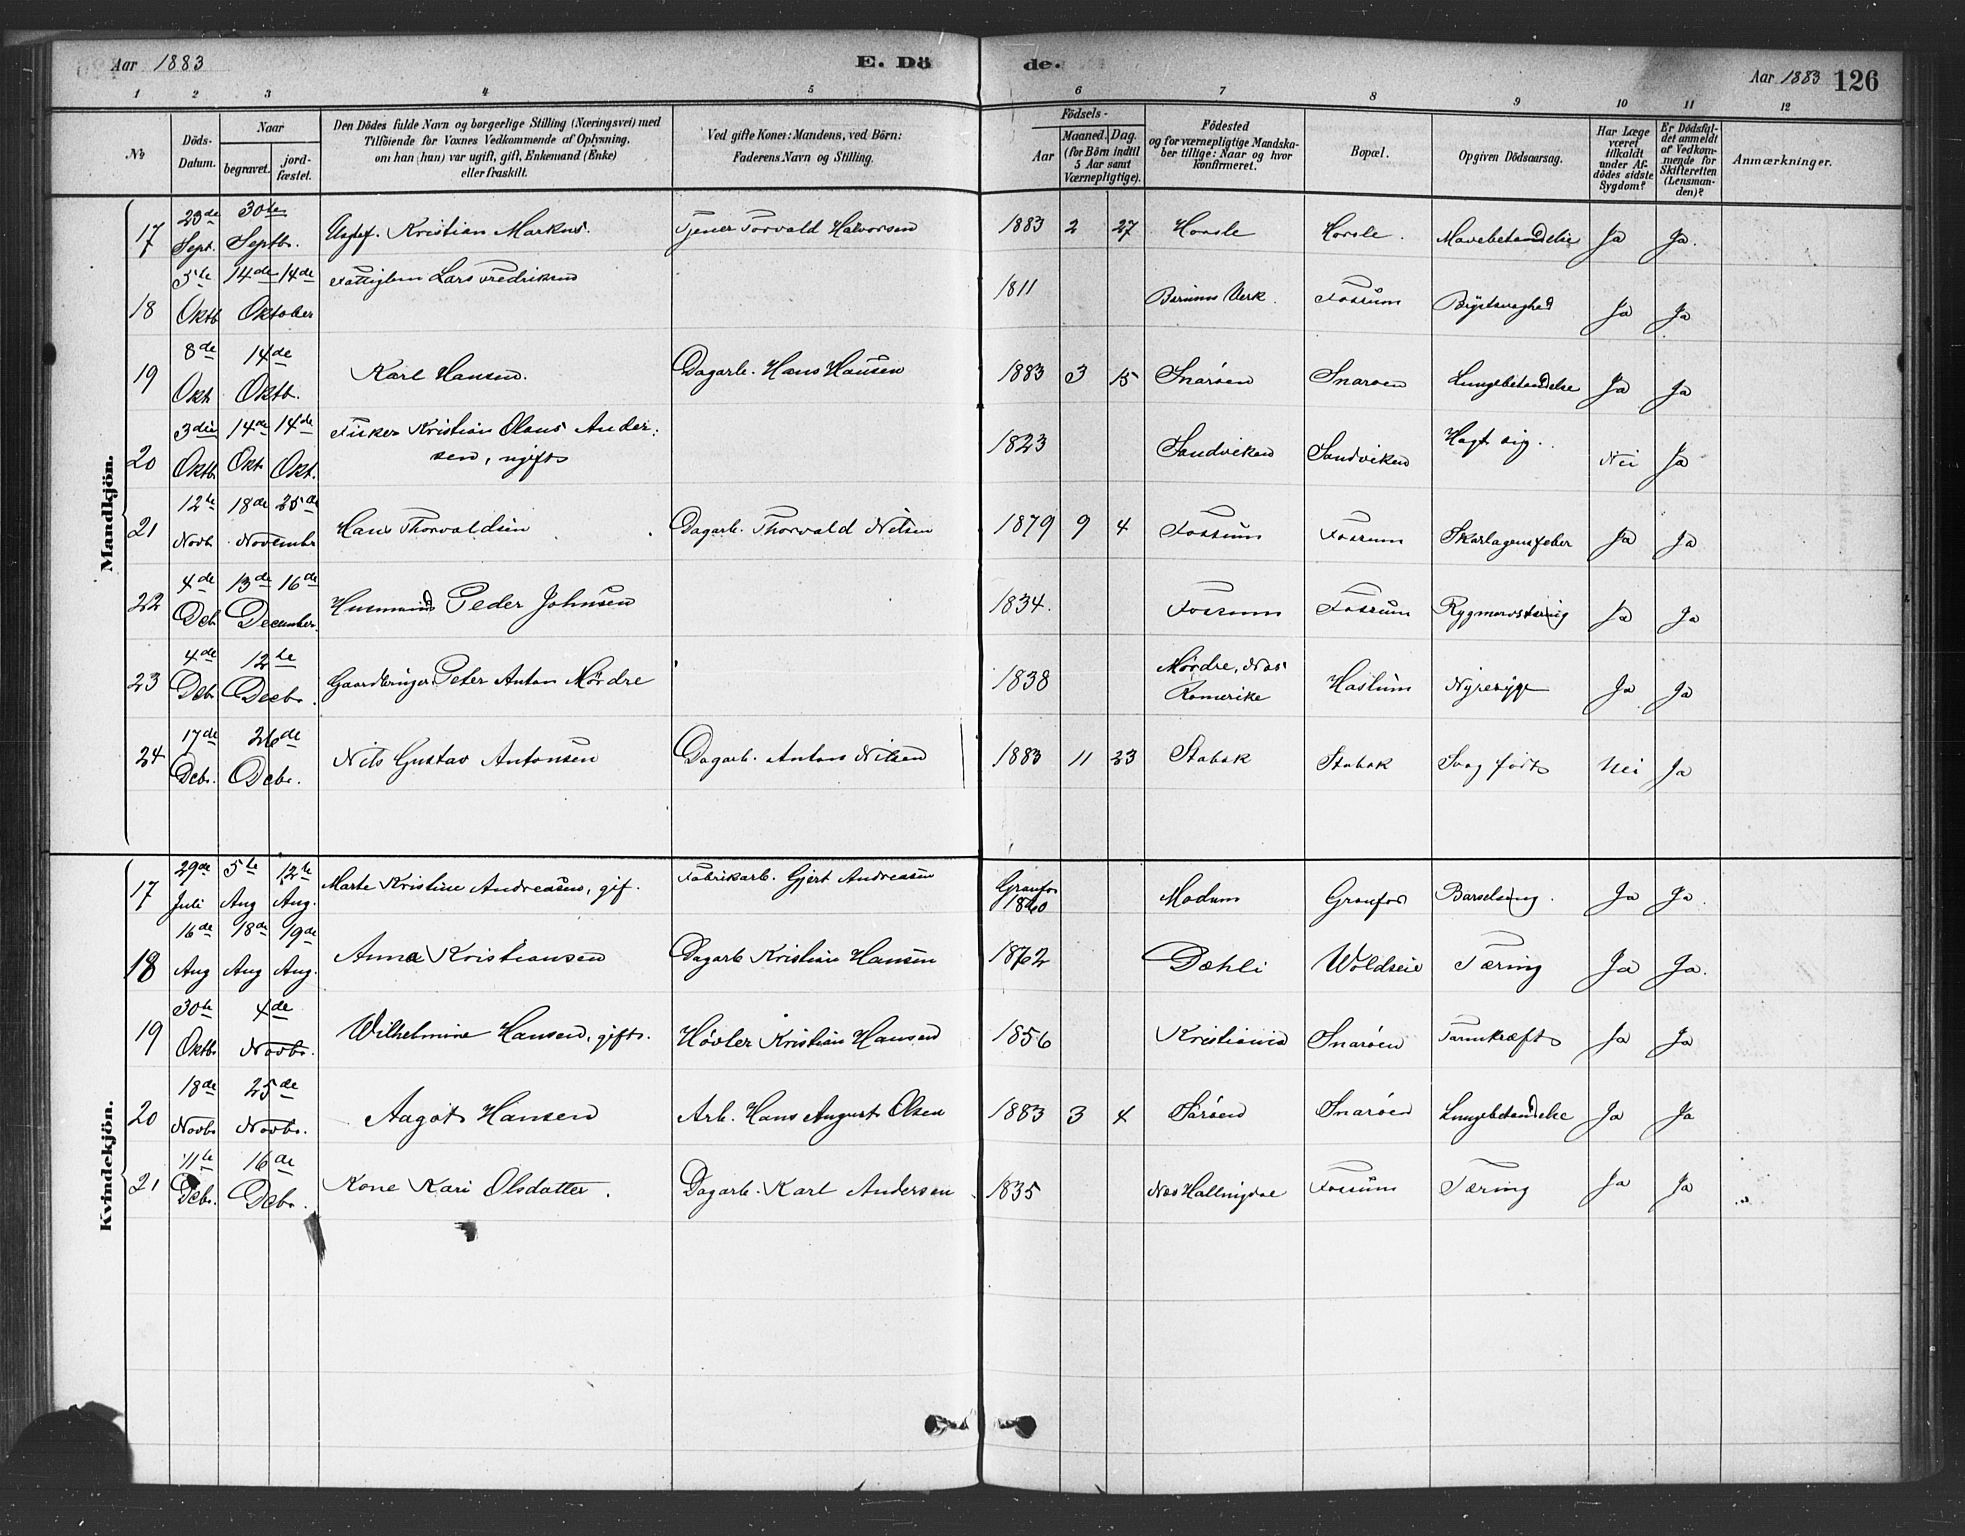 Aar 1883 E. Dö de. Aar 1883 126
1 2 3 4 5 6 7 8 9 10 11 12
No Döds-Datum. Naar begravet. jord-fæstet. Den Dödes fulde Navn og borgerlige Stilling (Næringsvei) med Tilföiende for Voxnes Vedkommende af Oplysning, om han (hun) var ugift, gift, Enkemand (Enke) eller fraskilt. Ved gifte Koner: Mandens, ved Börn: Faderens Navn og Stilling. Födsels- Aar Maaned. Dag. (for Börn indtil 5 Aar samt Værnepligtige). Födested og for værnepligtige Mandskaber tillige: Naar og hvor konfirmeret. Bopæl. Opgiven Dödsaarsag. Har Læge været tilkaldt under Afdödes sidste Sygdom? Er Dödsfaldet anmeldt af Vedkommende for Skifteretten (Lensmanden)? Anmærkninger.
Mandkjön.
17 23de Sept. 30te Septbr. Kristian Markus. Tjener Torvald Halvorsen 1883 2 27 Horsle Horsle. Mavebetændelse Ja Ja.
18 5te Oktb 14de 14de Oktober Fattiglem Lars Fredriksen 1811 Bærums Verk. Fossum Brystsvaghed Ja Ja
19 8de Okt. 14de Oktb. Karl Hansen. Dagarb. Hans Hansen 1883 3 15 Snarøen Snarøen Lungebetændelse Ja Ja
20 3die Oktb 14de Okt. 14de Okt. Fisker Kristian Olaus Andersen, ugift 1823 Sandviken Sandviken Nei Ja
21 12te Novb. 18de 25de November Hans Thorvaldsen Dagarb. Thorvald Nilsen 1879 9 4 Fossum Fossum Skarlagensfeber Ja Ja
22 4de Deb. 13de 16de December. Husmand Peder Johnsen 1834. Fossum Fossum Rygmarvstæring Ja Ja
23 4de Deb. 12te Decbr. Gaardbruger Peter Anton Mørdre 1838 Mørdre, Næs Romerike Haslum Nyresyge Ja Ja
24 17de Debr. 26de Debr. Nils Gustav Antonsen Dagarb. Anton Nilsen 1883 11 23 Stabæk Stabæk Svag født Nei Ja
Kvindekjön.
17 29de Juli 5te Aug 12te Aug. Marte Kristine Andreasen, gif. Fabrikarb. Gjert Andreasen Granfos 1860 Modum Granfos Barselseng. Ja Ja.
18 16de Aug 18de Aug 19de Aug. Anna Kristiansen Dagarb Kristian Hansen 1862 Dæhli Woldseie Tæring Ja Ja.
19 30te Oktb. 4de Novbr. Wilhelmine Hansen, gift. Høvler Kristian Hansen 1856 Kristiania Snarøen Tarmkræft Ja Ja
20 18de Novbr 25de Novbr. Aagot Hansen Arb. Hans August Olsen 1883 3 4 Sarøen Snarøen Lungebetændelse Ja Ja
21 11te Debr. 16de Debr. Kone Kari Olsdatter. Dagarb. Karl Andersen 1835 Næs Hallingdal Fossum Tæring Ja Ja